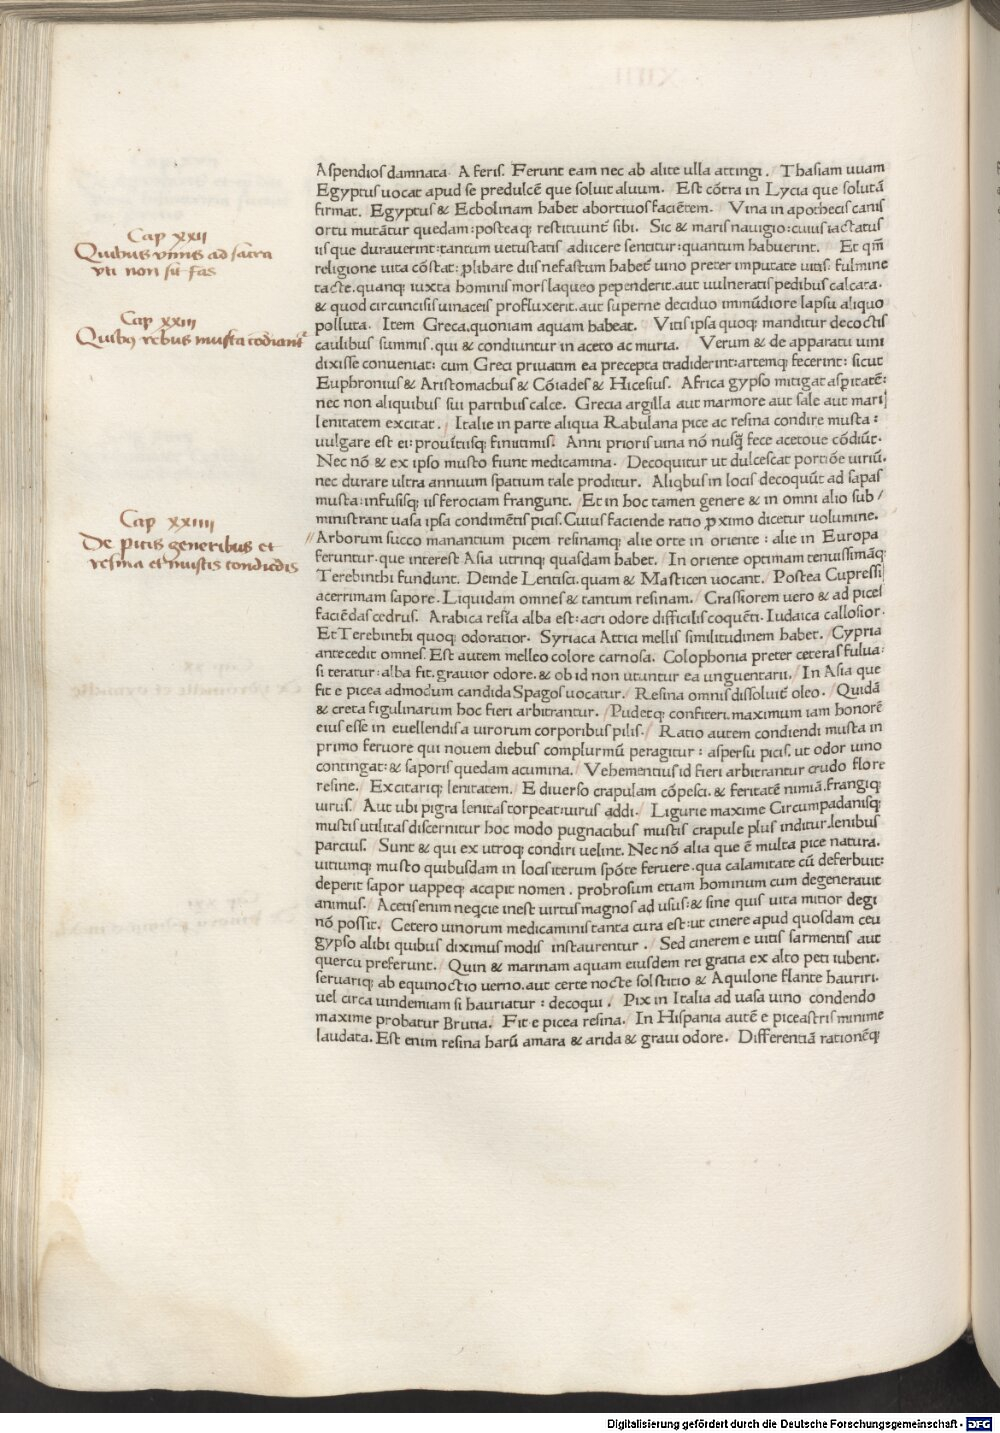 Aspendios damnata. A feris. Ferunt eam nec ab alite ulla attingi. Thasiam uuam
Egyptus uocat apud se predulcē que soluit aluum. Est cōtra in Lycia que solutā
firmat. Egyptus & Ecbolinam habet abortiuos faciētem. Vina in apothecis canis
ortu mutātur quedam: posteaq; restituunt sibi. Sic & maris nauigio: cuius iactatus
iis que durauerint: tantum uetustatis adiicere sentitur: quantum habuerint. Et qm̄
religione uita cōstat: p̱libare diis nefastum habet uino preter imputate uitis: fulmine
tacte. quanq; iuxta hominis mors laqueo pependerit. aut uulneratis pedibus calcata.
& quod circuncisis uinaceis profluxerit. aut superne deciduo immūdiore lapsu aliquo
polluta. Item Greca. quoniam aquam habeat. Vitis ipsa quoq; manditur decoctis
caulibus summis. qui & condiuntur in aceto ac muria. Verum & de apparatu uini
dixisse conueniat: cum Greci priuatim ea precepta tradiderint: artemq; fecerint: sicut
Euphronius & Aristomachus & Cōiades & Hicesius. Africa gypso mitigat asp̱itatē:
nec non aliquibus sui partibus calce. Grecia argilla aut marmore aut sale aut mari
lenitatem excitat. Italie in parte aliqua Rabulana pice ac resina condire musta:
uulgare est ei: prouītiisq; finitimis. Anni prioris uina nō nusq̄ fece acetoue cōdiūt.
Nec nō & ex ipso musto fiunt medicamina. Decoquitur ut dulcescat portiōe uiriū.
nec durare ultra annuum spatium tale proditur. Aliqbus in locis decoquūt ad sapas
musta: infusisq; iis ferociam frangunt. Et in hoc tamen genere & in omni alio sub/
ministrant uasa ipsa condimētis picis. Cuius faciende ratio p̱ximo dicetur uolumine.
Arborum succo manantium picem resinamq; alie orte in oriente: alie in Europa
feruntur. que interest Asia utrinq; quasdam habet. In oriente optimam tenuissimāq;
Terebinthi fundunt. Deinde Lentisci. quam & Masticen uocant. Postea Cupressi
acerrimam sapore. Liquidam omnes & tantum resinam. Crassiorem uero & ad picē
faciēdas cedrus. Arabica resīa alba est: acri odore difficilis coquēti. Iudaica callosior.
Et Terebinthi quoq; odoratior. Syriaca Attici mellis similitudinem habet. Cypria
antecedit omnes. Est autem melleo colore carnosa. Colophonia preter ceteras fulua:
si teratur: alba fit. grauior odore. & ob id non utuntur ea unguentarii. In Asia que
fit e picea admodum candida Spagos uocatur. Resina omnis dissoluit oleo. Quidā
& creta figulinarum hoc fieri arbitrantur. Pudetq; confiteri. maximum iam honorē
eius esse in euellendis a uirorum corporibus pilis. Ratio autem condiendi musta in
primo feruore qui nouem diebus complurmū peragitur: aspersu picis. ut odor uino
contingat: & saporis quedam acumina. Vehementius id fieri arbitrantur crudo flore
resine. Excitariq; lenitatem. E diuerso crapulam cōpesci. & feritatē nimiā. frangiq;
uirus. Aut ubi pigra lenitas torpeat: uirus addi. Ligurie maxime Circumpadanisq;
mustis utilitas discernitur hoc modo pugnacibus mustis crapule plus inditur. lenibus
parcius. Sunt & qui ex utroq; condiri uelint. Nec nō alia que ē multa pice natura.
uitiumq; musto quibusdam in locis iterum spōte feruere. qua calamitate cū deferbuit:
deperit sapor uappeq; accipit nomen. probrosum etiam hominum cum degenerauit
animus. Acetis enim neqcie inest uirtus magnos ad usus: & sine quis uita mitior degi
nō possit. Cetero uinorum medicaminis tanta cura est: ut cinere apud quosdam ceu
gypso alibi quibus diximus modis instaurentur. Sed cinerem e uitis sarmentis aut
quercu preferunt. Quin & marinam aquam eiusdem rei gratia ex alto peti iubent.
seruariq; ab equinoctio uerno. aut certe nocte solstitio & Aquilone flante hauriri.
uel circa uindemiam si hauriatur: decoqui. Pix in Italia ad uasa uino condendo
maxime probatur Brutia. Fit e picea resina. In Hispania autē e piceastris minime
laudata. Est enim resina harū amara & arida & graui odore. Differentiā rationēq;
Cap xxii
Quibus vinis ad sacra
vti non sit fas
Cap xxiii
Quibus rebus musta condiant
Cap xxiiii
De picis generibus et
resina et mustis condiēdis
Digitalisierung gefördert durch die Deutsche Forschungsgemeinschaft - DFG